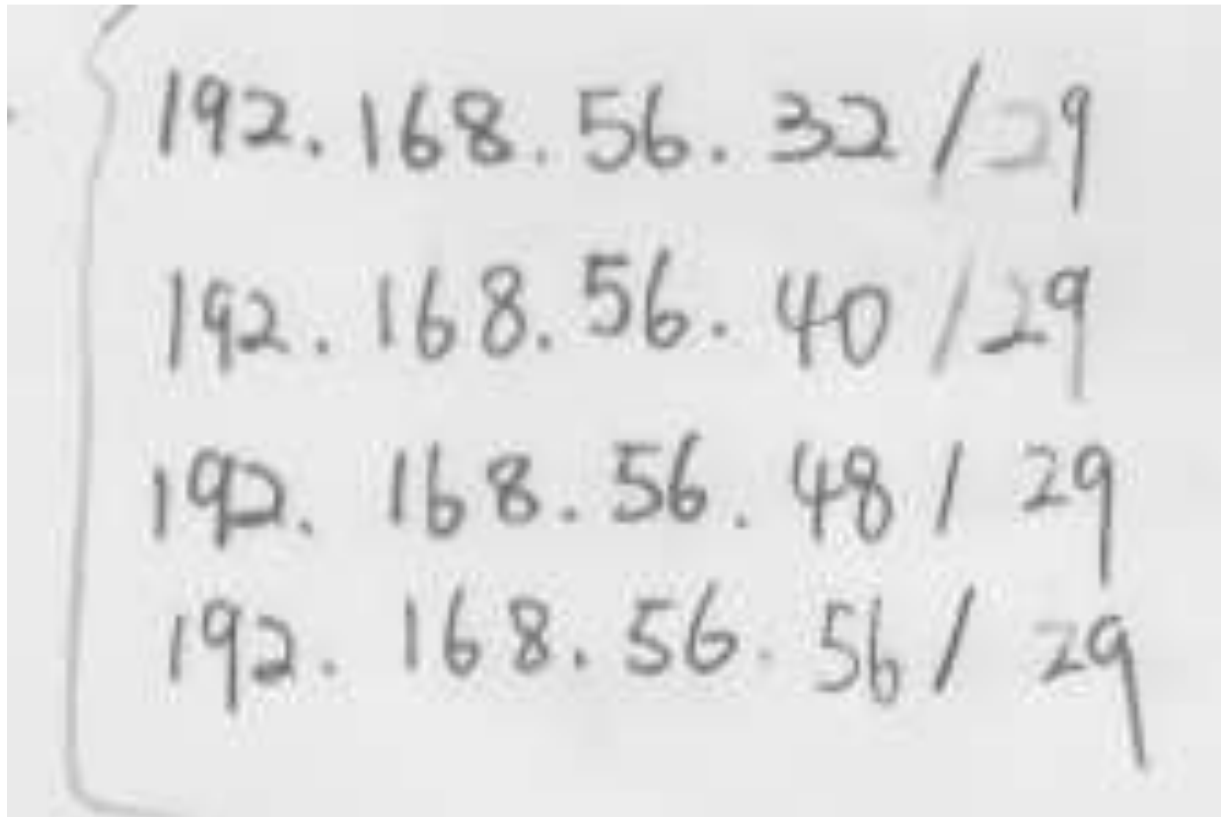 192.168.56.32/29
192.168.56.40/29
192.168.56.48/29
192.168.56.56/29